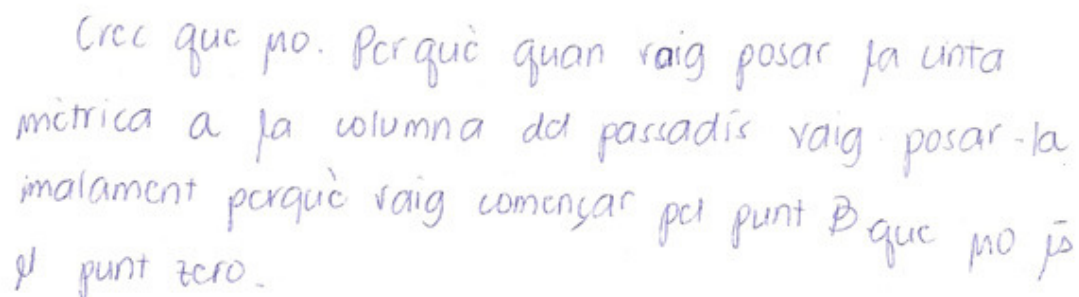 Crec que no. Perquè quan vaig posar la cinta
mètrica a la columna del passadís vaig posar-la
malament perquè vaig començar pel punt B que no és
el punt zero.